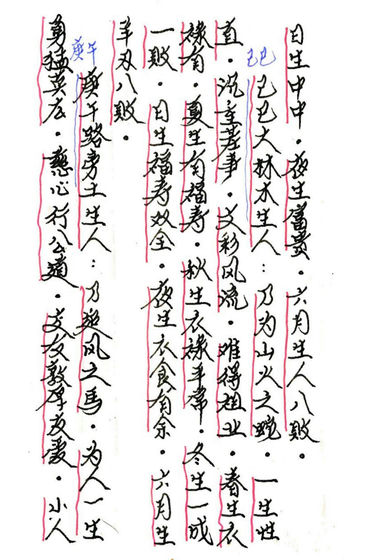 日生中中。夜生富贵。六月生人八败。
己巳
己巳大林木生人：乃为山火之蛇。一生性
直。沉重荐事。文彩风流。难得祖业。春生衣
禄有。夏生有福寿。秋生衣禄平常。冬生一成
一败。日生福寿双全。夜生衣食有余。六月生
羊刃八败。
庚午
庚午路旁土生人：乃旋风之马。为人一生
勇猛英。慈心行公道。交友敦厚友爱。小人